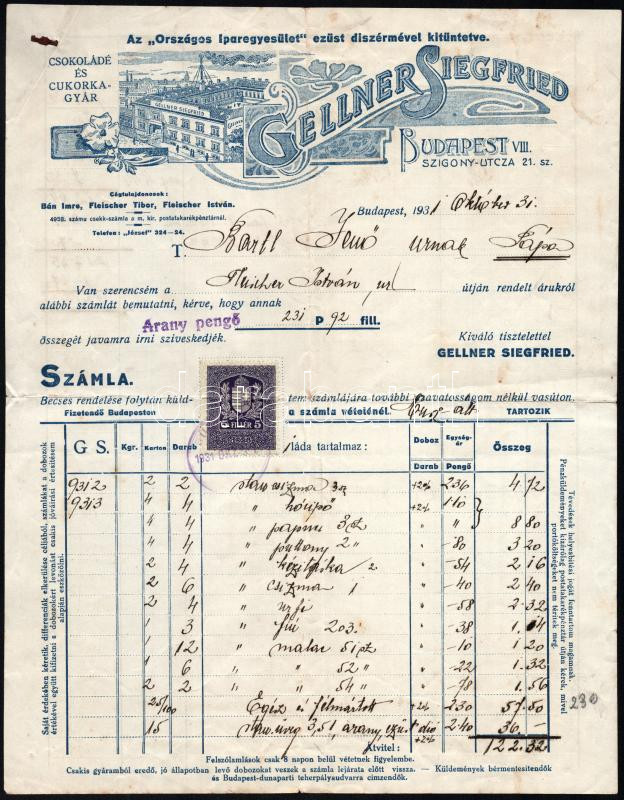 Az „Országos Iparegyesület" ezüst diszérmével kitüntetve.
CSOKOLÁDÉ
ÉS
CUKORKA-
GYÁR
GELLNER SIEGFRIED
GELLNER SIEGFRIED
BUDAPEST VIII.
SZIGONY-UTCZA 21. sz.
Cégtulajdonosok:
Bán Imre, Fleischer Tibor, Fleischer István.
4958. számu csekk-számla a m. kir. postatakarékpénztárnál.
Telefon: „József" 324—24.
Budapest, 1931 Október 31.
T. Bartl Jenő urnak Pápa
Van szerencsém a Fleischer István ur utján rendelt árukról
alábbi számlát bemutatni, kérve, hogy annak 231 P 92 fill.
Arany pengő
összegét javamra irni sziveskedjék.
Kiváló tisztelettel
GELLNER SIEGFRIED.
SZÁMLA.
Becses rendelése folytán küld- tem számlájára további szavatosságom nélkül vasúton.
Fizetendő Budapesten a számla vételénél. TARTOZIK
FILLÉR 5
1931
G S. Kgr. Karton Darab láda tartalmaz: Doboz Darab Egység-ár Pengő Összeg
9312 2 2 csizma +2% 236 4.72
9313 4 4 " +2% 1.10
4 4 " " 8 80
4 4 " 2 " -80 3 20
2 4 " 2 -54 2 16
2 6 " csizma 1 -40 2 40
2 4 " -58 2.32
1 3 " 203. -38 1.14
1 12 " malac 51 -10 1 20
1 6 " " 52 " -22 1.32
2 2 " " 54 " -78 1.56
25/100 Egész és félmártott +2% 230 57.50
15 arany ezüst dió +2% 2.40 36.—
230
Átvitel: 122.32
Saját érdekében kéretik, differenciák elkerülése céljából, számlákat a dobozok
értékével együtt kifizetni a dobozokért levonást csakis jóváirási értesítésem
alapján eszközölni.
Tévedések helyesbítési jogát fenntartom magamnak.
Pénzküldeményeket kizárólag postatakarékpénztár utján kérek, mivel
portóköltségeket nem térítek meg.
Felszólamlások csak 8 napon belül vétetnek figyelembe.
Csakis gyáramból eredő, jó állapotban levő dobozokat veszek a számla lejárata előtt vissza. — Küldemények bérmentesítendők
és Budapest-dunaparti teherpályaudvarra címzendők.